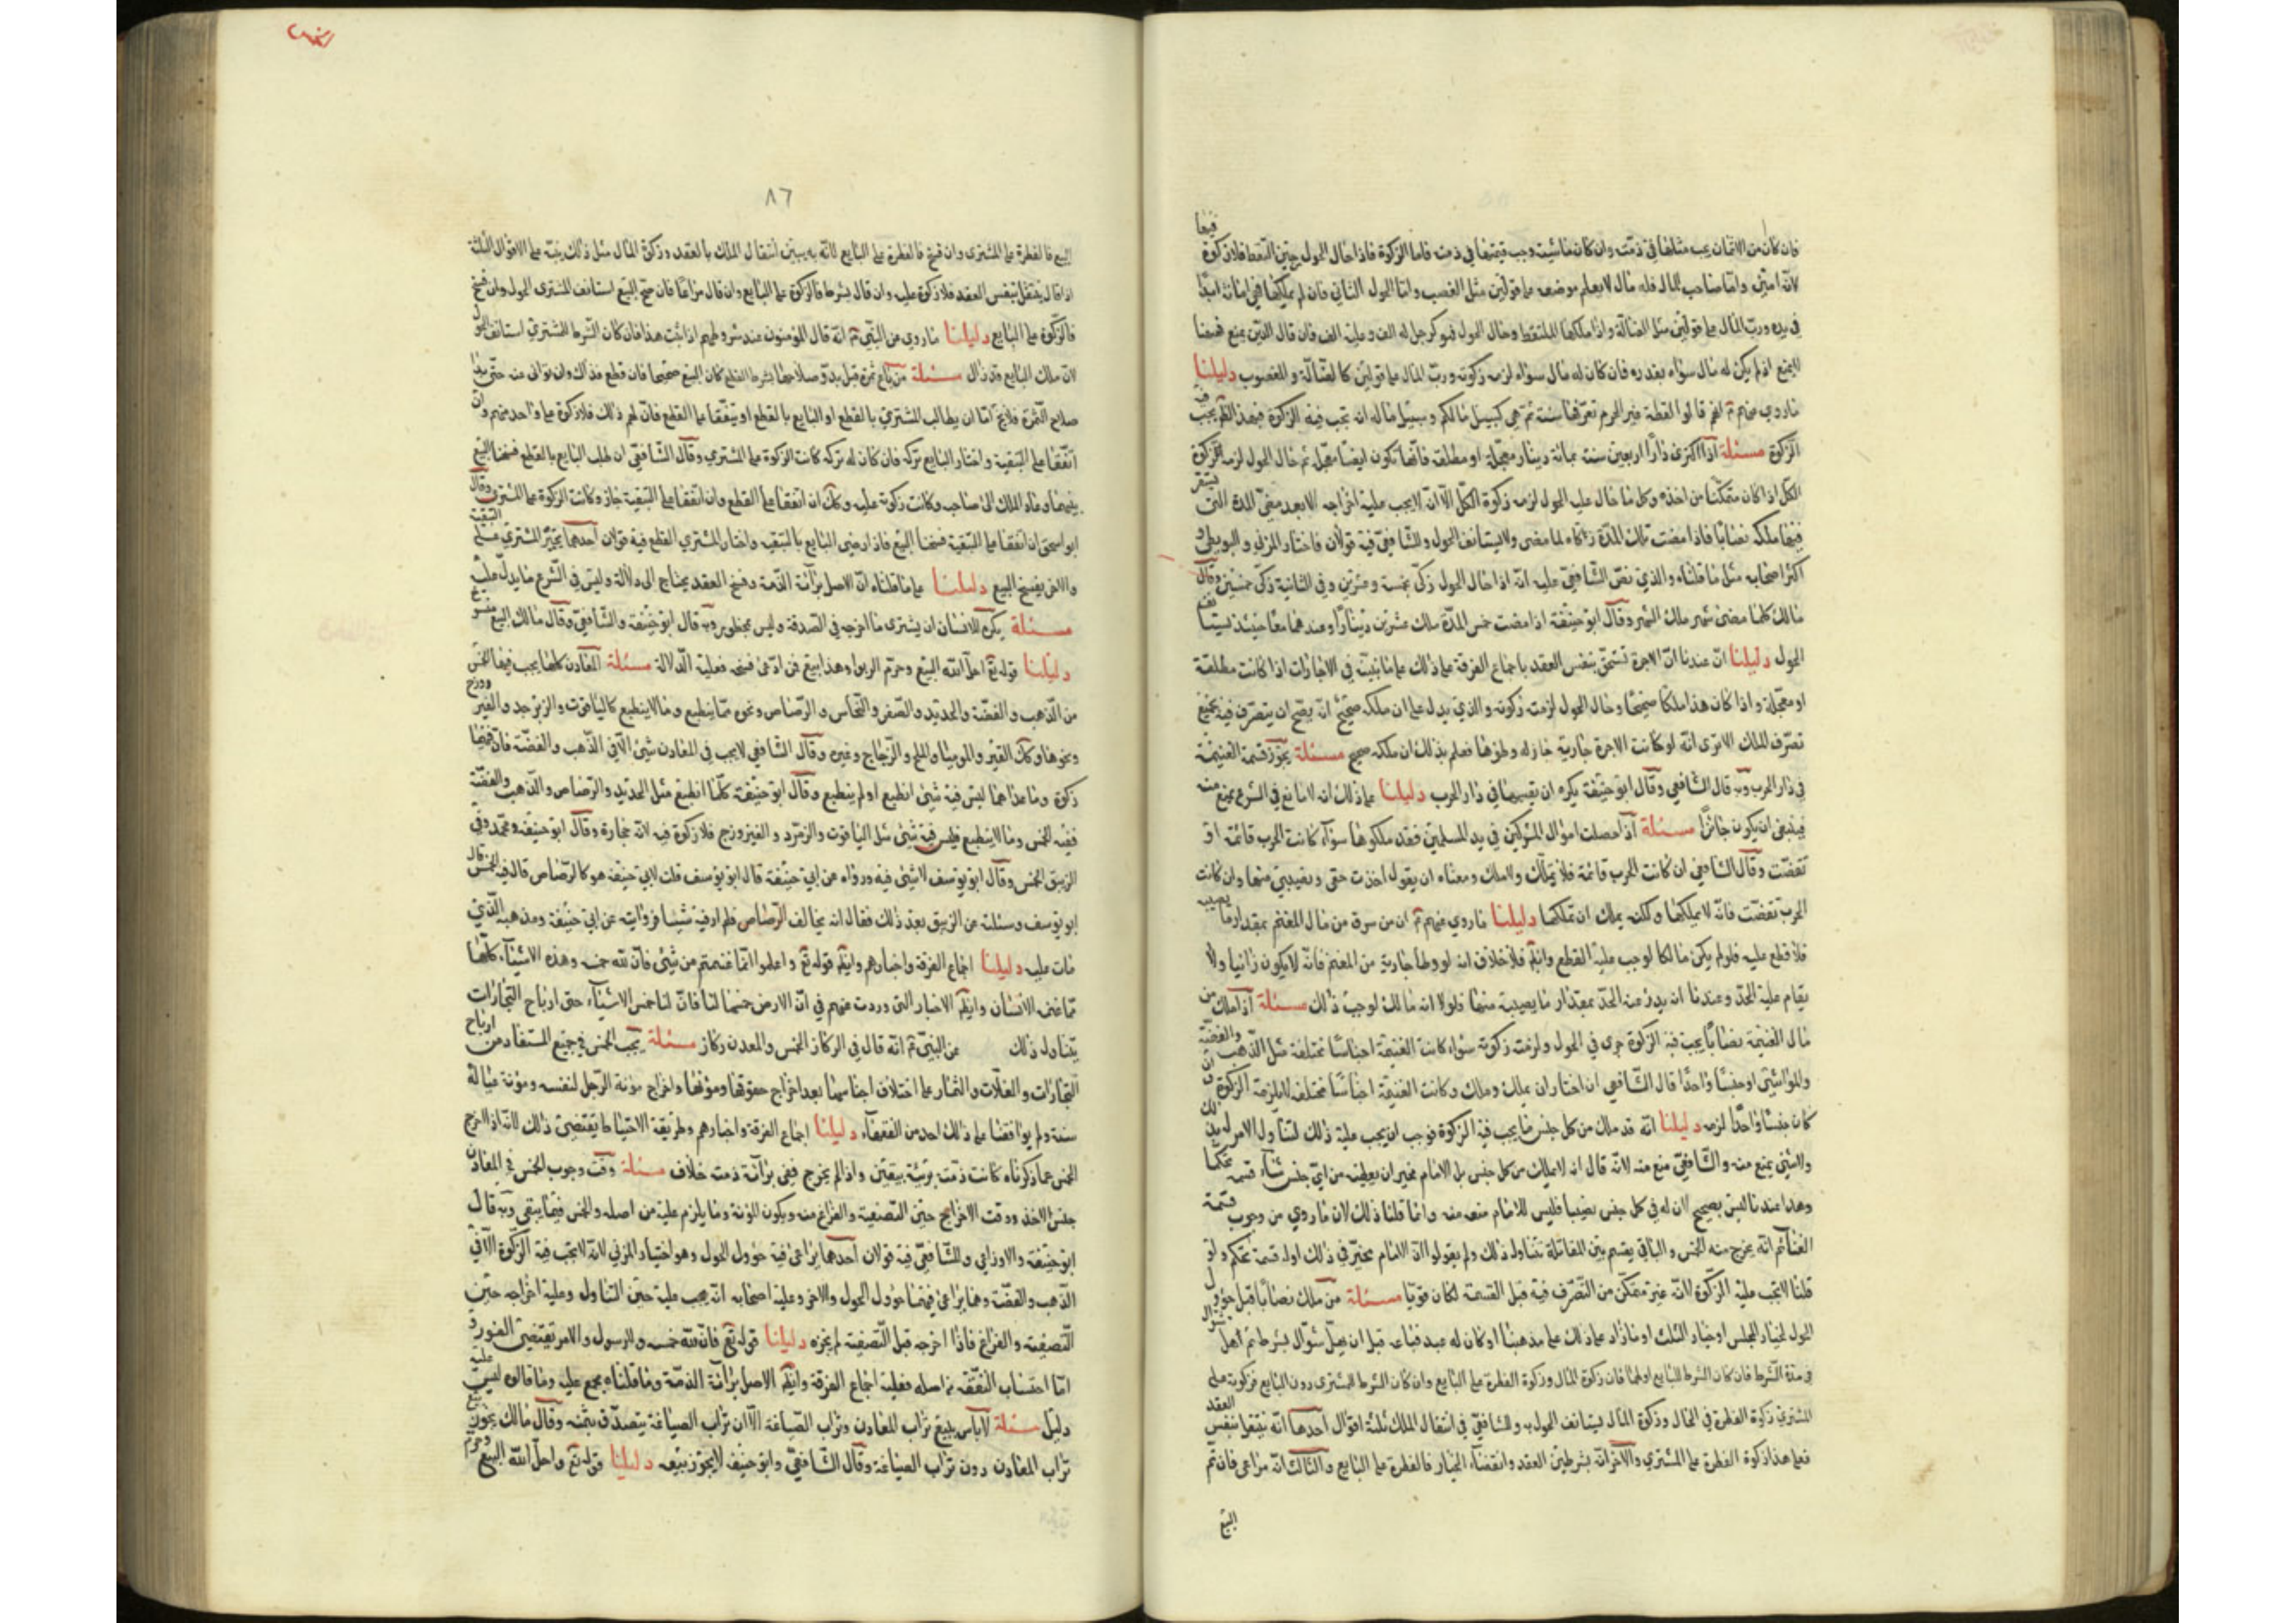 فيها
فان كان من الاثمان يجب مثلها في ذمته وان كان ماشية وجب قيمتها في ذمته فاما الزكوة فاذا حال الحول من حين التقط فلا زكوة
لانه امين واما صاحب المال فله مال لا يعلم موضعه على قولين مثل الغصب واما الحول الثاني فان لم يملكها فهي امانة ايضا
في يده ورب المال على قولين مثل الضالة واذا ملكها الملتقط وحال الحول فهو كرجل له الف وعليه الف فان قال الدين يمنع فهنا
لا يمنع اذا لم يكن له مال سواه بقدره فان كان له مال سواه لزمه زكوته ورب المال على قولين كالضالة والمغصوب دليلنا
ما روي عنهم انهم قالوا لقطة غير الحرم تعرفها سنة ثم هي كسبيل مالكم وسبيل ماله ان تجب فيه الزكوة فهذا تجب فيه
الزكوة مسئلة اذا اكترى دارا اربعين سنة بمائة دينار معجلة او مطلقة فانها تكون ايضا معجلة ثم حال الحول لزمه زكوة
الكل اذا كان متمكنا من اخذه وكل ما حال عليه الحول لزمه زكوة الكل الا انه لا يجب عليه اخراجه الا بعد مضي المدة التي يستقر
فيها ملكه نصابا فاذا مضت تلك المدة زكاه لما مضى ولا يستانف الحول وللشافعي فيه قولان فاختار المزني والبويطي و
اكثر اصحابه مثل ما قلناه والذي نص الشافعي عليه انه اذا حال الحول زكى خمسة وعشرين وفي الثانية زكى خمسين وقال
مالك كلما مضى شهر ملك الشهر وقال ابو حنيفة اذا مضت خمس المدة ملك عشرين دينارا وعندهما معا حينئذ يستانف
الحول دليلنا ان عندنا ان الاجرة تستحق بنفس العقد باجماع الفرقة على ذلك على ما نبينه في الاجارات اذا كانت مطلقة
او معجلة واذا كان هذا ملكا صحيحا وحال الحول لزمته زكوته والذي يدل على ان ملكه صحيح انه يصح ان يتصرف فيه جميع
تصرف الملك الا ترى انه لو كانت الاجرة جارية جاز له وطؤها فعلم بذلك ان ملكه صحيح مسئلة يجوز قسمة الغنيمة
في دار الحرب وبه قال الشافعي وقال ابو حنيفة يكره ان يقسمها في دار الحرب دليلنا على ذلك انه لا مانع في الشرع يمنع منه
فينبغي ان يكون جائزا مسئلة اذا حصلت اموال المشركين في يد المسلمين فقد ملكوها سواء كانت الحرب قائمة او
تقضت وقال الشافعي ان كانت الحرب قائمة فلا يملك ولا ملك ومعناه ان يقول اخذت حقي ونصيبي منها وان كانت
الحرب تقضت فانه لا يملكها ولكنه يملك ان تملكها دليلنا ما روي عنهم ان من سرق من مال المغنم بمقدار ما يصيبه
فلا قطع عليه فلو لم يكن مالكا لوجب عليه القطع وايضا فلا خلاف انه لو وطأ جارية من المغنم فانه لا يكون زانيا ولا
يقام عليه الحد وعندنا ان يدرء عنه الحد بمقدار ما يصيبه منها ولولا انه مالك لوجب ذلك مسئلة اذا ملك من
مال الغنيمة نصابا يجب فيه الزكوة جرى في الحول ولزمته زكوته سواء كانت الغنيمة اجناسا مختلفة مثل الذهب والفضة
والمواشي او جنسا واحدا قال الشافعي ان اختار ان يملك وملك وكانت الغنيمة اجناسا مختلفة لا يلزمه الزكوة وان
كان جنسا واحدا لزمه دليلنا انه قد ملك من كل جنس ما يجب فيه الزكوة فوجب ان يجب عليه ذلك لتناول الامر له بذلك
ولا شيء يمنع منه والشافعي منع منه لانه قال انه لا يملك من كل جنس بل الامام مخير ان يعطيه من اي جنس شاء قسمة تحكما
وهذا عندنا ليس بصحيح لان له في كل جنس نصيبا فليس للامام منعه منه وانما قلنا ذلك لان ما روي من وجوب قسمة
الغنائم انه يخرج منه الخمس والباقي يقسم بين المقاتلة يتناول ذلك ولم يقولوا ان الامام مخير في ذلك او له قسمة تحكم ولو
قلنا لا تجب عليه الزكوة لانه غير متمكن من التصرف فيه قبل القسمة لكان قويا مسئلة من ملك نصابا قبل حؤول
الحول لخيار المجلس او خيار الثلث او ما زاد على ذلك على مذهبنا او كان له عبد فباعه قبل ان يهل شوال بشرط ثم اهل شوال
في مدة الشرط فان كان الشرط للبايع او لهما فان زكوة المال وزكوة الفطرة على البايع وان كان الشرط للمشتري دون البايع فزكوته على
المشتري زكوة الفطرة في الحال وزكوة المال يستانف الحول به وللشافعي في انتقال الملك ثلثة اقوال احدها انه ينتقل بنفس العقد
فعلى هذا زكوة الفطرة على المشتري والاخر انه بشرطين العقد وانقضاء الخيار فالفطرة على البايع والثالث انه مراعى فان تم
البيع
٨٦
البيع فالفطرة على المشتري وان فسخ فالفطرة على البايع لانه به يبين انتقال الملك بالعقد وزكوة المال مثل ذلك بنيته على الاقوال الثلثة
اذا قال ينتقل بنفس العقد فلا زكوة عليه وان قال بشرط فالزكوة على البايع وان قال مراعا فان صح البيع استانف المشتري الحول وان فسخ
فالزكوة على البايع دليلنا ما روي من النبي انه قال المؤمنون عند شروطهم اذا ثبت هذا فان كان الشرط للمشتري استانف الحول
لان ملك البايع قد زال مسئلة من باع ثمرة قبل بدو صلاحها بشرط القطع كان البيع صحيحا فان قطع فذاك وان توانى عنه حتى بدا
صلاح الثمرة فلا يخ اما ان يطالب المشتري بالقطع او البايع بالقطع او يتفقا على القطع فانه لهم ذلك فلا زكوة على واحد منهم وان
اتفقا على التبقية واختار البايع تركه فان كان له تركه كانت الزكوة على المشتري وقال الشافعي ان طلب البايع بالقطع فسخنا البيع
بينهما وعاد الملك الى صاحبه وكانت زكوته عليه وكك ان اتفقا على القطع وان اتفقا على التبقية جاز وكانت الزكوة على المشتري وقال
ابو اسحق ان اتفقا على التبقية فسخنا البيع فاذا رضي البايع بالتبقية واختار المشتري القطع فيه قولان احدهما يجبر المشتري على التبقية
والاخر يفسخ البيع دليلنا على ما قلناه ان الاصل براءة الذمة وفسخ العقد يحتاج الى دلالة وليس في الشرع ما يدل عليه
مسئلة يكره للانسان ان يشتري ما اخرجه في الصدقة وليس بمحظور وبه قال ابو حنيفة والشافعي وقال مالك البيع مفسوخ
دليلنا قوله تع احل الله البيع وحرم الربوا وهذا بيع فمن ادعى فسخه فعليه الدلالة مسئلة المعادن كلها يجب فيها الخمس
من الذهب والفضة والحديد والصفر والنحاس والرصاص ونحوه مما ينطبع ومما لا ينطبع كالياقوت والزبرجد والفيروزج
ونحوها وكك القير والموميا والملح والزجاج وغيره وقال الشافعي لا يجب في المعادن شيء الا في الذهب والفضة فان فيهما
زكوة وما عداهما ليس فيه شيء انطبع او لم ينطبع وقال ابو حنيفة كلما انطبع مثل الحديد والرصاص والذهب والفضة
ففيه الخمس وما لا ينطبع فليس فيه شيء مثل الياقوت والزمرد والفيروزج فلا زكوة فيه لانه حجارة وقال ابو حنيفة ومحمد وفي
الزيبق الخمس وقال ابو يوسف لا شيء فيه ورواه عن ابي حنيفة قال ابو يوسف قلت لابي حنيفة هو كالرصاص قال فيه الخمس قال
ابو يوسف وسئلته عن الزيبق بعد ذلك فقال انه يخالف الرصاص فلم ار فيه شيئا فروايته عن ابي حنيفة ومذهبه الذي
مات عليه دليلنا اجماع الفرقة واخبارهم وايضا قوله تع واعلموا انما غنمتم من شيء فان لله خمسه وهذه الاشياء كلها
مما غنمه الانسان وايضا الاخبار التي وردت عنهم في ان الارض خمسها لنا فان لنا خمس الاشياء حتى ارباح التجارات
يتناول ذلك عن النبي انه قال في الركاز الخمس والمعدن ركاز مسئلة يجب الخمس في جميع المستفاد من ارباح
التجارات والغلات والثمار على اختلاف اجناسها بعد اخراج حقوقها ومؤنها واخراج مؤنة الرجل لنفسه ومؤنة عياله
سنة ولم يوافقنا على ذلك احد من الفقهاء دليلنا اجماع الفرقة واخبارهم وطريقة الاحتياط يقتضي ذلك لانه اذا اخرج
الخمس عما ذكرناه كانت ذمته برئية بيقين واذا لم يخرج ففي براءة ذمته خلاف مسئلة وقت وجوب الخمس في المعادن
حين الاخذ ووقت الاخراج حين التصفية والفراغ منه ويكون المؤنة وما يلزم عليه من اصله والخمس فيما يبقى وبه قال
ابو حنيفة والاوزاعي وللشافعي فيه قولان احدهما يراعى فيه حؤول الحول وهو اختيار المزني لانه لا تجب فيه الزكوة الا في
الذهب والفضة وهما يراعى فيهما حؤول الحول والاخر وعليه اصحابه انه يجب عليه حين التناول وعليه اخراجه حين
التصفية والفراغ فاذا اخرجه قبل التصفية لم يجزه دليلنا قوله تع فان لله خمسه وللرسول والامر يقتضي الفور و
اما احتساب النفقة من اصله فعليه اجماع الفرقة وايضا الاصل براءة الذمة وما قلناه مجمع عليه وما قالوه ليس عليه
دليل مسئلة لا بأس ببيع تراب المعادن وتراب الصياغة الا ان تراب الصياغة يتصدق بثمنه وقال مالك يجوز بيع
تراب المعادن دون تراب الصياغة وقال الشافعي وابو حنيفة لا يجوز بيعه دليلنا قوله تع واحل الله البيع وحرم